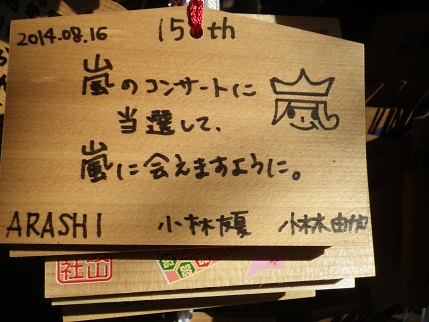 2014.08.16
15th
嵐のコンサートに
当選して、
嵐に会えますように。
ARASHI 小林 小林由